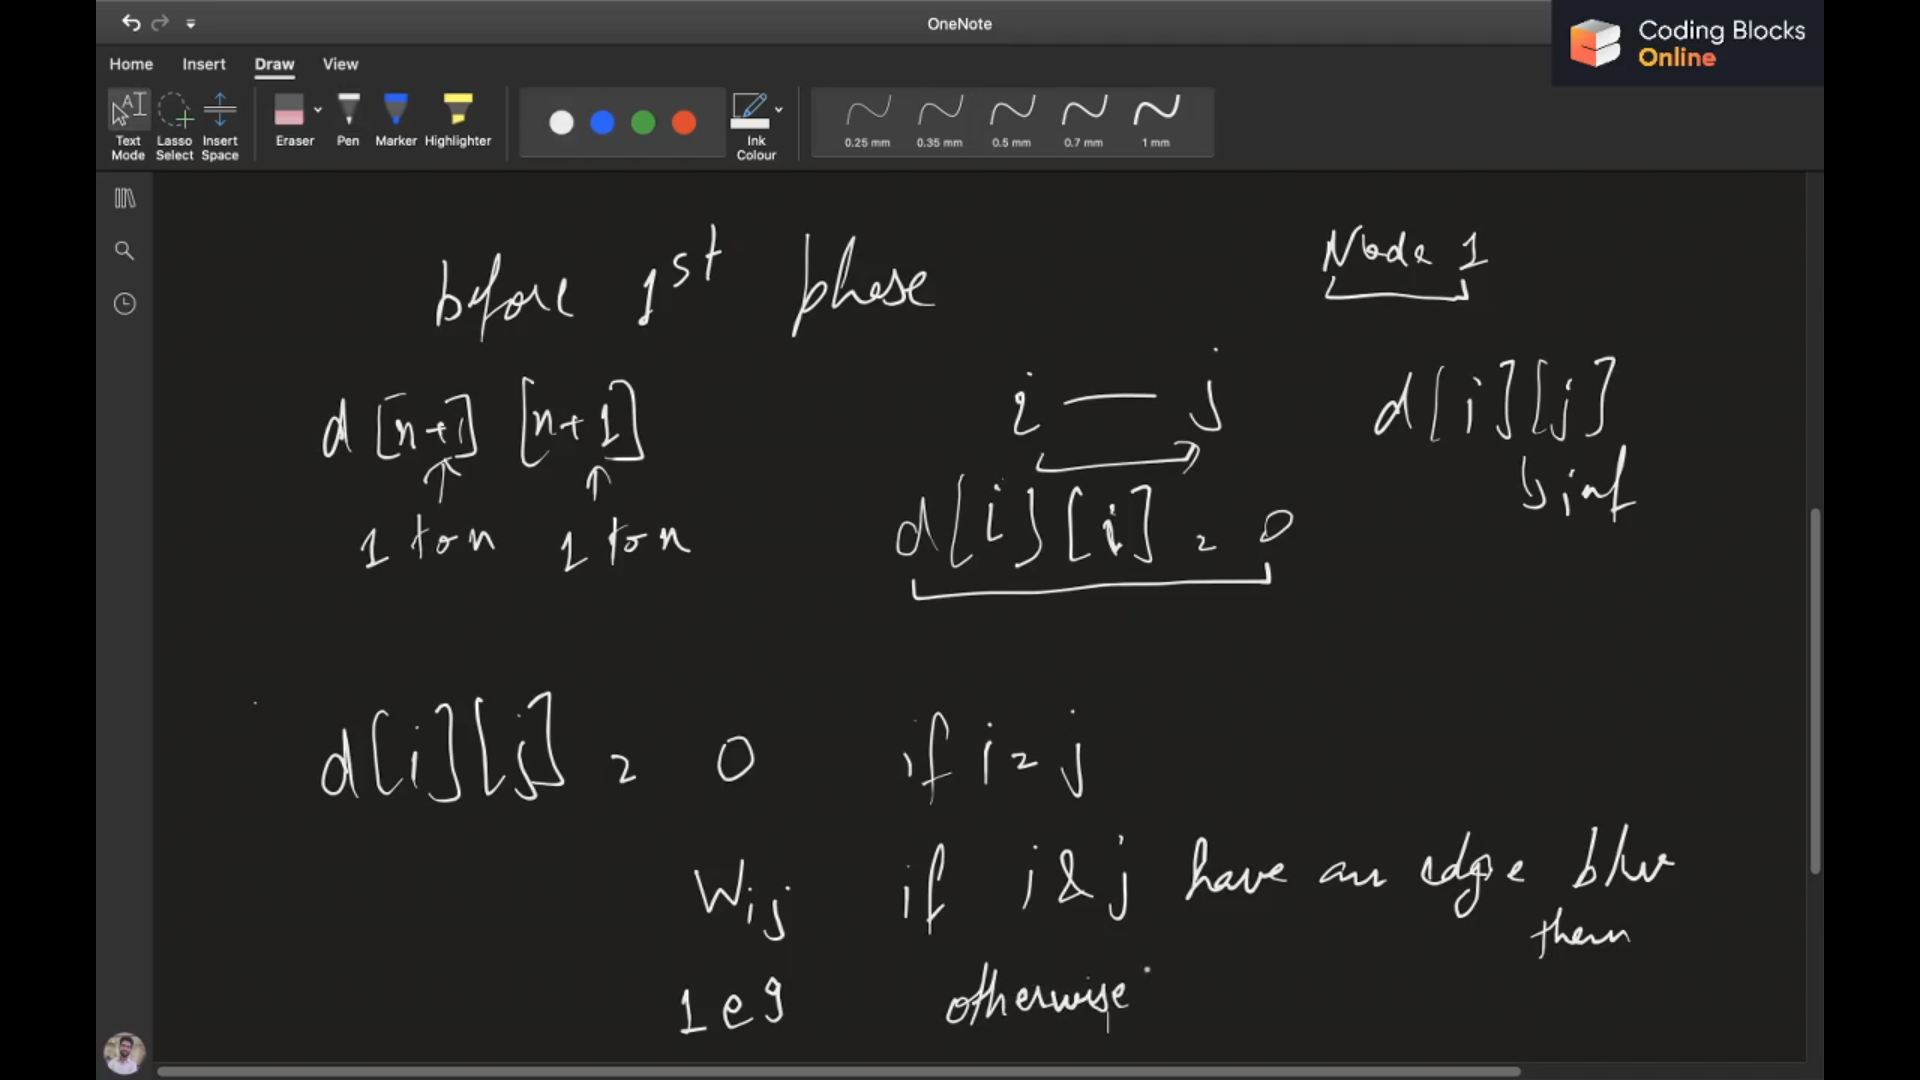 OneNote
Coding Blocks
Online
Home Insert Draw View
Text Mode Lasso Select Insert Space Eraser Pen Marker Highlighter Ink Colour 0.25 mm 0.35 mm 0.5 mm 0.7 mm 1 mm
before 1st phase
Node 1
d[n+1] [n+1]
1 to n 1 to n
i — j
d[i][j]
↳ inf
d[i][i] = 0
d[i][j] = 0 if i = j
Wij if i & j have an edge b/w
them
1e9 otherwise